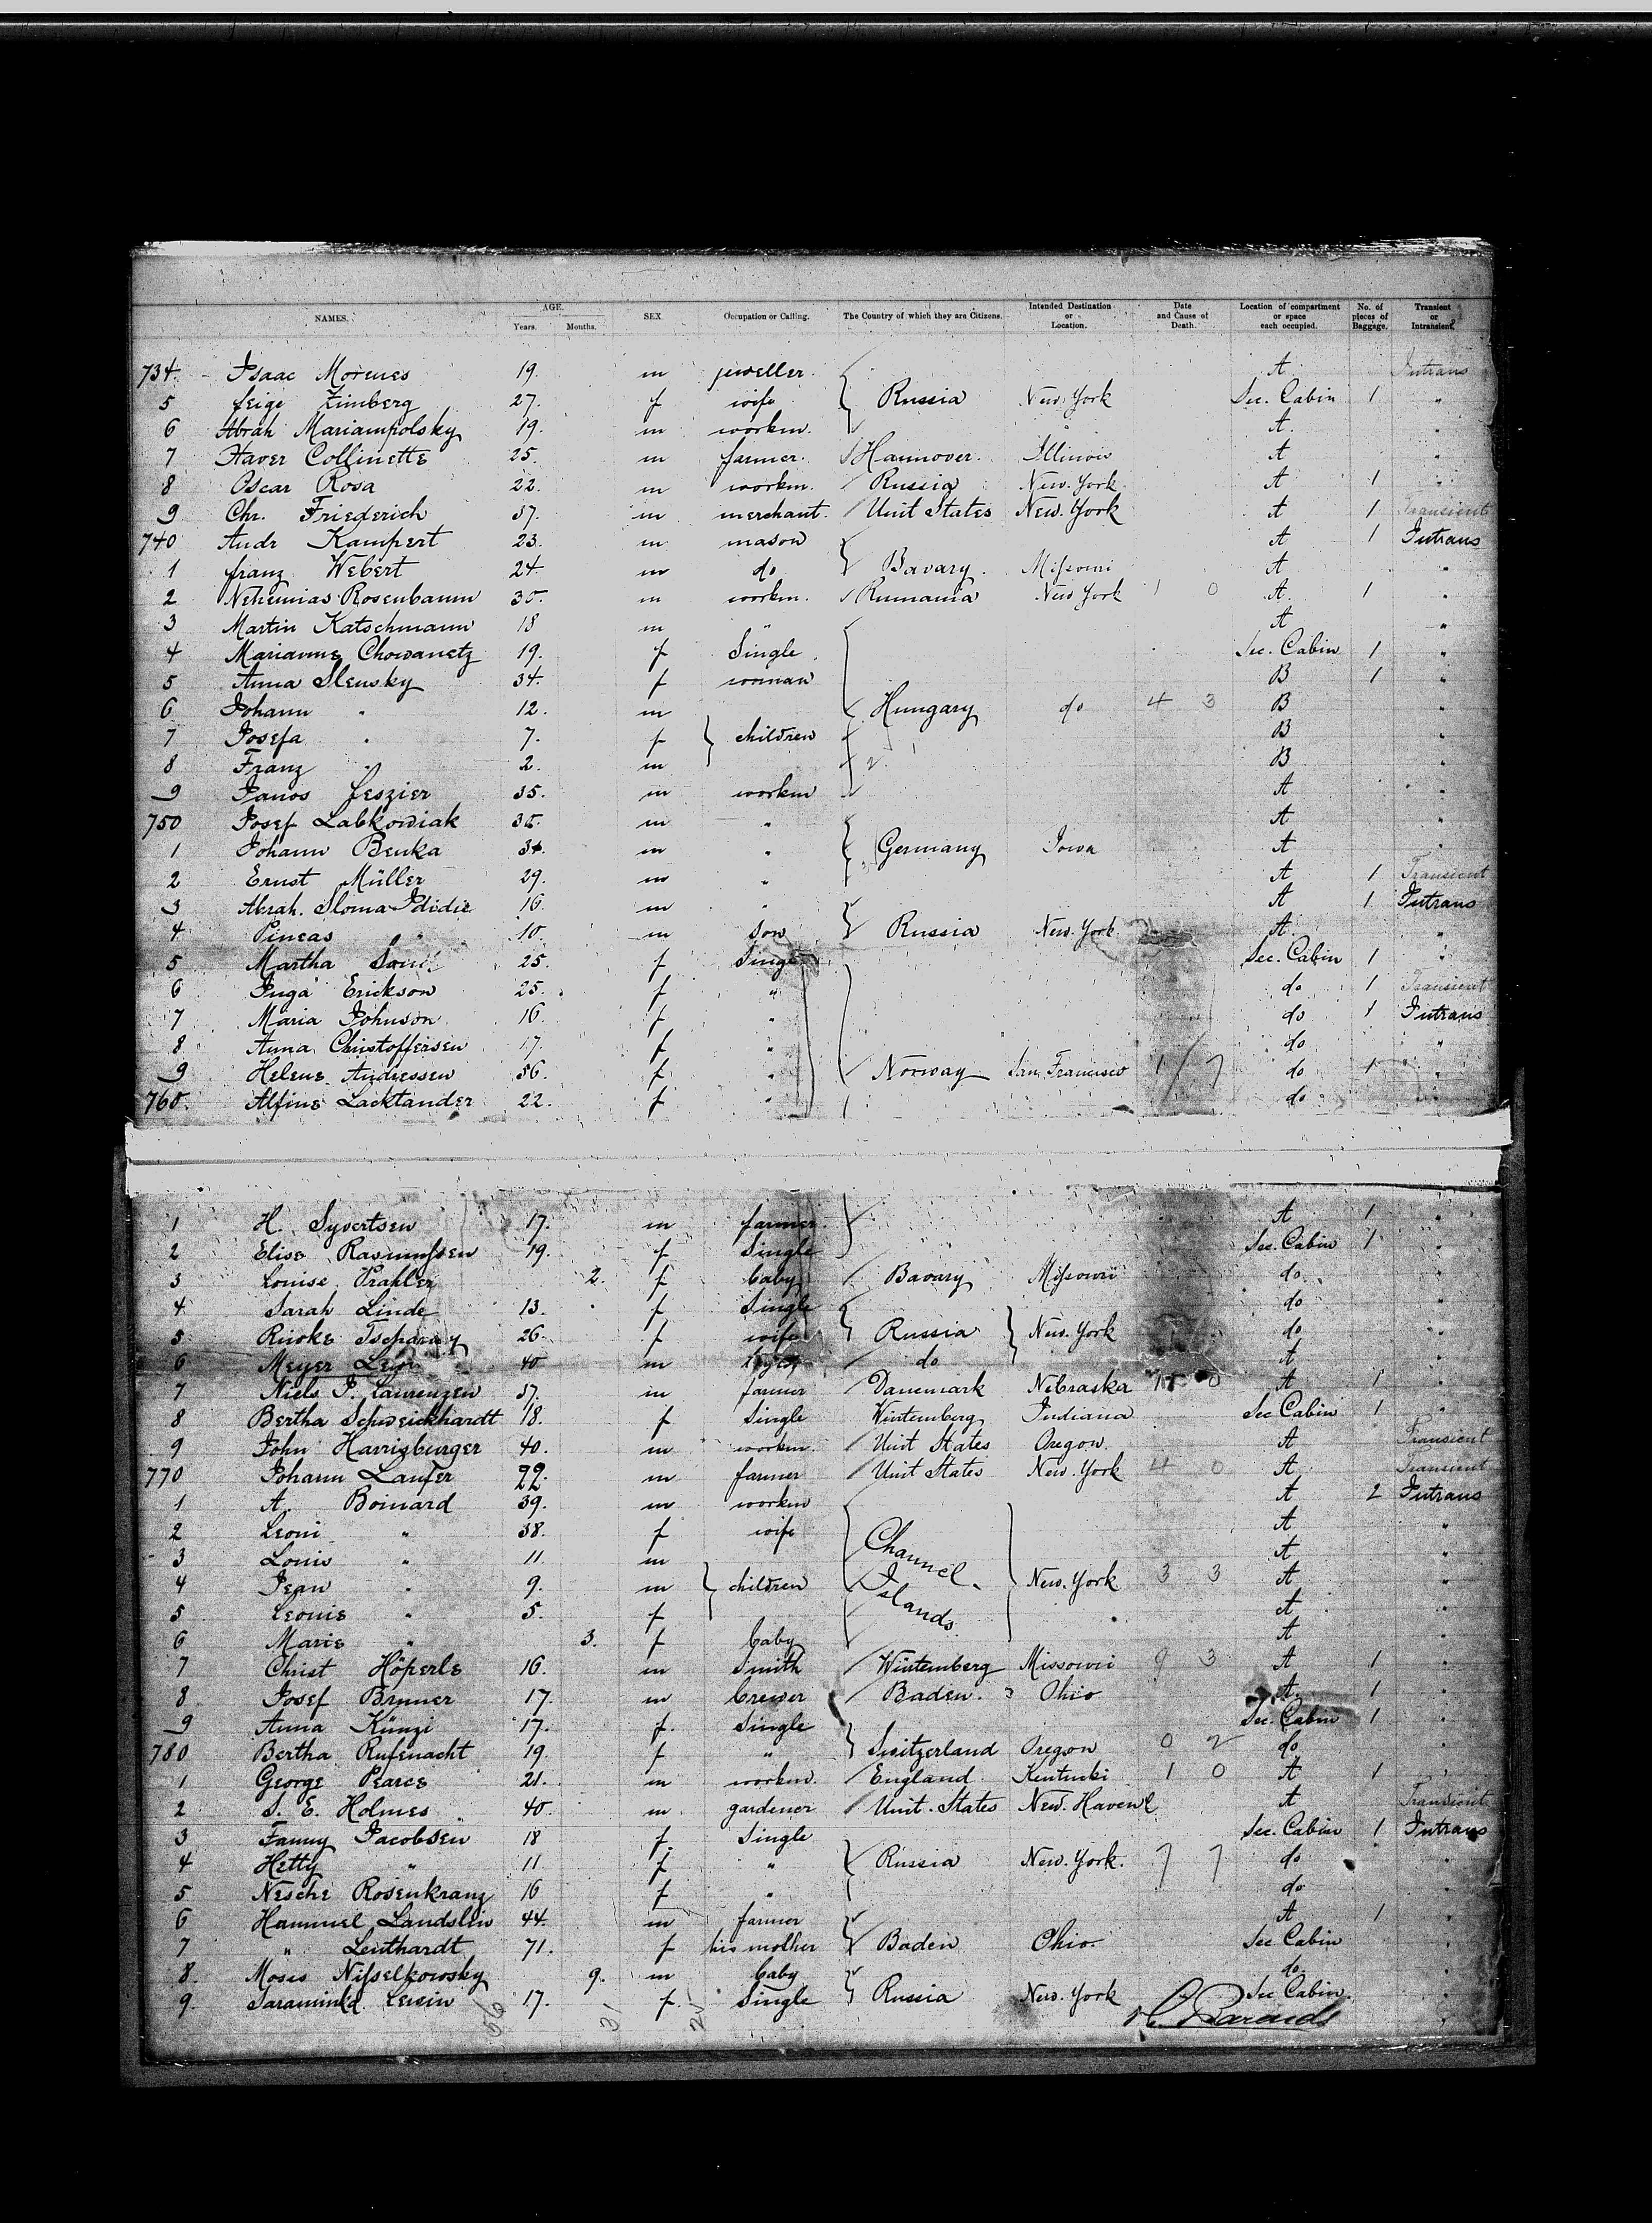 NAMES. AGE. Years. Months. SEX. Occupation or Calling. The Country of which they are Citizens. Intended Destination or Location. Date and Cause of Death. Location of compartment or space each occupied. No. of pieces of Baggage. Transient or Intransient.
734. Isaac Morenes 19. m jeweller. A Intrans
5 feige Zimberg 27. f wife Russia New. York Sec. Cabin 1 "
6 Abrah Mariampolsky 19. m workm. A. "
7 Xaver Collinette 25. m farmer. Hannover. Illinois A "
8 Oscar Rosa 22. m workm. Russia New. York A 1 "
9 Chr. Friederich 37. m merchant. Unit States New. York A 1 Transient
740 Andr Kampert 23. m mason A 1 Intrans
1 franz Webert 24. m do Bavary. Missouri A "
2 Nehemias Rosenbaum 30. m workm. Rumania New York 1 0 A. 1 "
3 Martin Katschmann 18 m " A "
4 Marianne Chowanetz 19. f Single Sec. Cabin 1 "
5 Anna Slensky 34. f woman B 1 "
6 Johann " 12. m Hungary do 4 3 B "
7 Josefa " 7. f children B "
8 Franz " 2. m B "
9 Janos feszier 35. m workm A "
750 Josef Labkowiak 35. m " A "
1 Johann Benka 34. m " Germany Iowa A "
2 Ernst Müller 29. m " A 1 Transient
3 Abrah. Sloma Ididie 16. m " A 1 Intrans
4 Pineas " 10. m son Russia New. York A. "
5 Martha 25. f Sec. Cabin 1 "
6 Inga Erickson 25. f " do 1 Transient
7 Maria Johnson 16. f " do 1 Intrans
8 Anna Christoffersen 17. f " do "
9 Helene Andressen 56. f " Norway San Francisco 1 7 do 1 "
760. Alfine Lacktander 22. f " do "
1 H. Syvertsen 17. m farmer A 1 "
2 Elise Rasmussen 19. f Single Sec. Cabin 1 "
3 Louise Prahler 2. f baby Bavary Missouri do "
4 Sarah Linde 13. f Single do "
5 Riwke 26. f wife Russia New. York do "
6 Meyer 40 m do A "
7 Niels J. Laurenzen 37. m farmer Danemark Nebraska A 1 "
8 Bertha Schweickhardt 18. f Single Würtemberg Indiana Sec Cabin 1 "
9 John Harrisburger 40. m workm. Unit States Oregon. A Transient
770 Johann Laufer 22. m farmer Unit States New. York 4 0 A Transient
1 A. Boinard 39. m workm A 2 Intrans
2 Leoni " 38. f wife A "
3 Louis " 11. m Channel A "
4 Jean " 9. m children Islands. New. York 3 3 A "
5 Leonie " 5. f A "
6 Marie " 3. f baby A "
7 Christ Höperle 16. m Smith Würtemberg Missouri 9 3 A 1 "
8 Josef Bruner 17. m brewer Baden. Ohio A. 1 "
9 Anna Künzi 17. f. Single Sec. Cabin 1 "
780 Bertha Rufenacht 19. f " Switzerland Oregon 0 2 do "
1 George Pearce 21. m workm. England Kentucki 1 0 A 1 "
2 S. E. Holmes 40. m gardener Unit. States New. Haven A Transient
3 Fanny Jacobsen 18 f. Single Sec. Cabin 1 Intrans
4 Hetty " 11 f " Russia New. York. 7 7 do "
5 Nesche Rosenkranz 16 f " do "
6 Hammel Landslin 44. m farmer A 1 "
7 " Leuthardt 71. f his mother Baden Ohio. Sec Cabin "
8. Moses Nisselkowsky 9. m baby do. "
9. 17. f. Single Russia New. York Sec Cabin. "
56 31 25